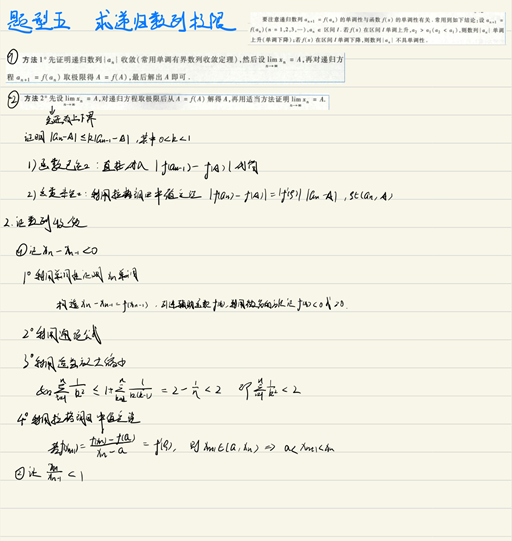 题型五 求递归数列极限
要注意递归数列 aₙ₊₁ = f(aₙ) 的单调性与函数 f(x) 的单调性有关. 常用到如下结论: 设 aₙ₊₁ =
f(aₙ)(n = 1,2,3,⋯), aₙ ∈ 区间 I. 若 f(x) 在区间 I 单调上升, a₂ > a₁(a₂ < a₁), 则数列{aₙ}单调
上升(单调下降); 若 f(x) 在区间 I 单调下降, 则数列{aₙ}不具单调性.
① 方法 1° 先证明递归数列{aₙ}收敛(常用单调有界数列收敛定理), 然后设 lim xₙ = A, 再对递归方
程 aₙ₊₁ = f(aₙ) 取极限得 A = f(A), 最后解出 A 即可.
② 方法 2° 先设 lim xₙ = A, 对递归方程取极限后从 A = f(A) 解得 A, 再用适当方法证明 lim xₙ = A.
n→∞
证明 |aₙ-A| ≤ k|aₙ₋₁-A|, 其中 0<k<1
1) 函数已知: 直接代入 |f(aₙ₋₁) - f(A)|
2) 利用拉格朗日中值定理 |f(aₙ)-f(A)| = |f'(ξ)| |aₙ-A|, ξ∈(aₙ, A)
2. 证数列收敛
① 证 xₙ - xₙ₋₁ < 0
1° 利用单调性证明 xₙ 单调
构造 xₙ - xₙ₋₁ = f(xₙ₋₁). 引进辅助函数 f(x), f(x) < 0 或 > 0.
2° 利用通项公式
3° 利用适当放大缩小
如 Σ 1/k² ≤ 1 + Σ 1/k(k-1) = 2 - 1/n < 2 即 Σ 1/k² < 2
4° 利用拉格朗日中值定理
若 f(xₙ₊₁) = (f(xₙ) - f(a))/(xₙ - a) = f'(ξ), 则 xₙ₊₁ ∈ (a, xₙ) ⇒ a < xₙ₊₁ < xₙ
② 证 xₙ/xₙ₋₁ < 1